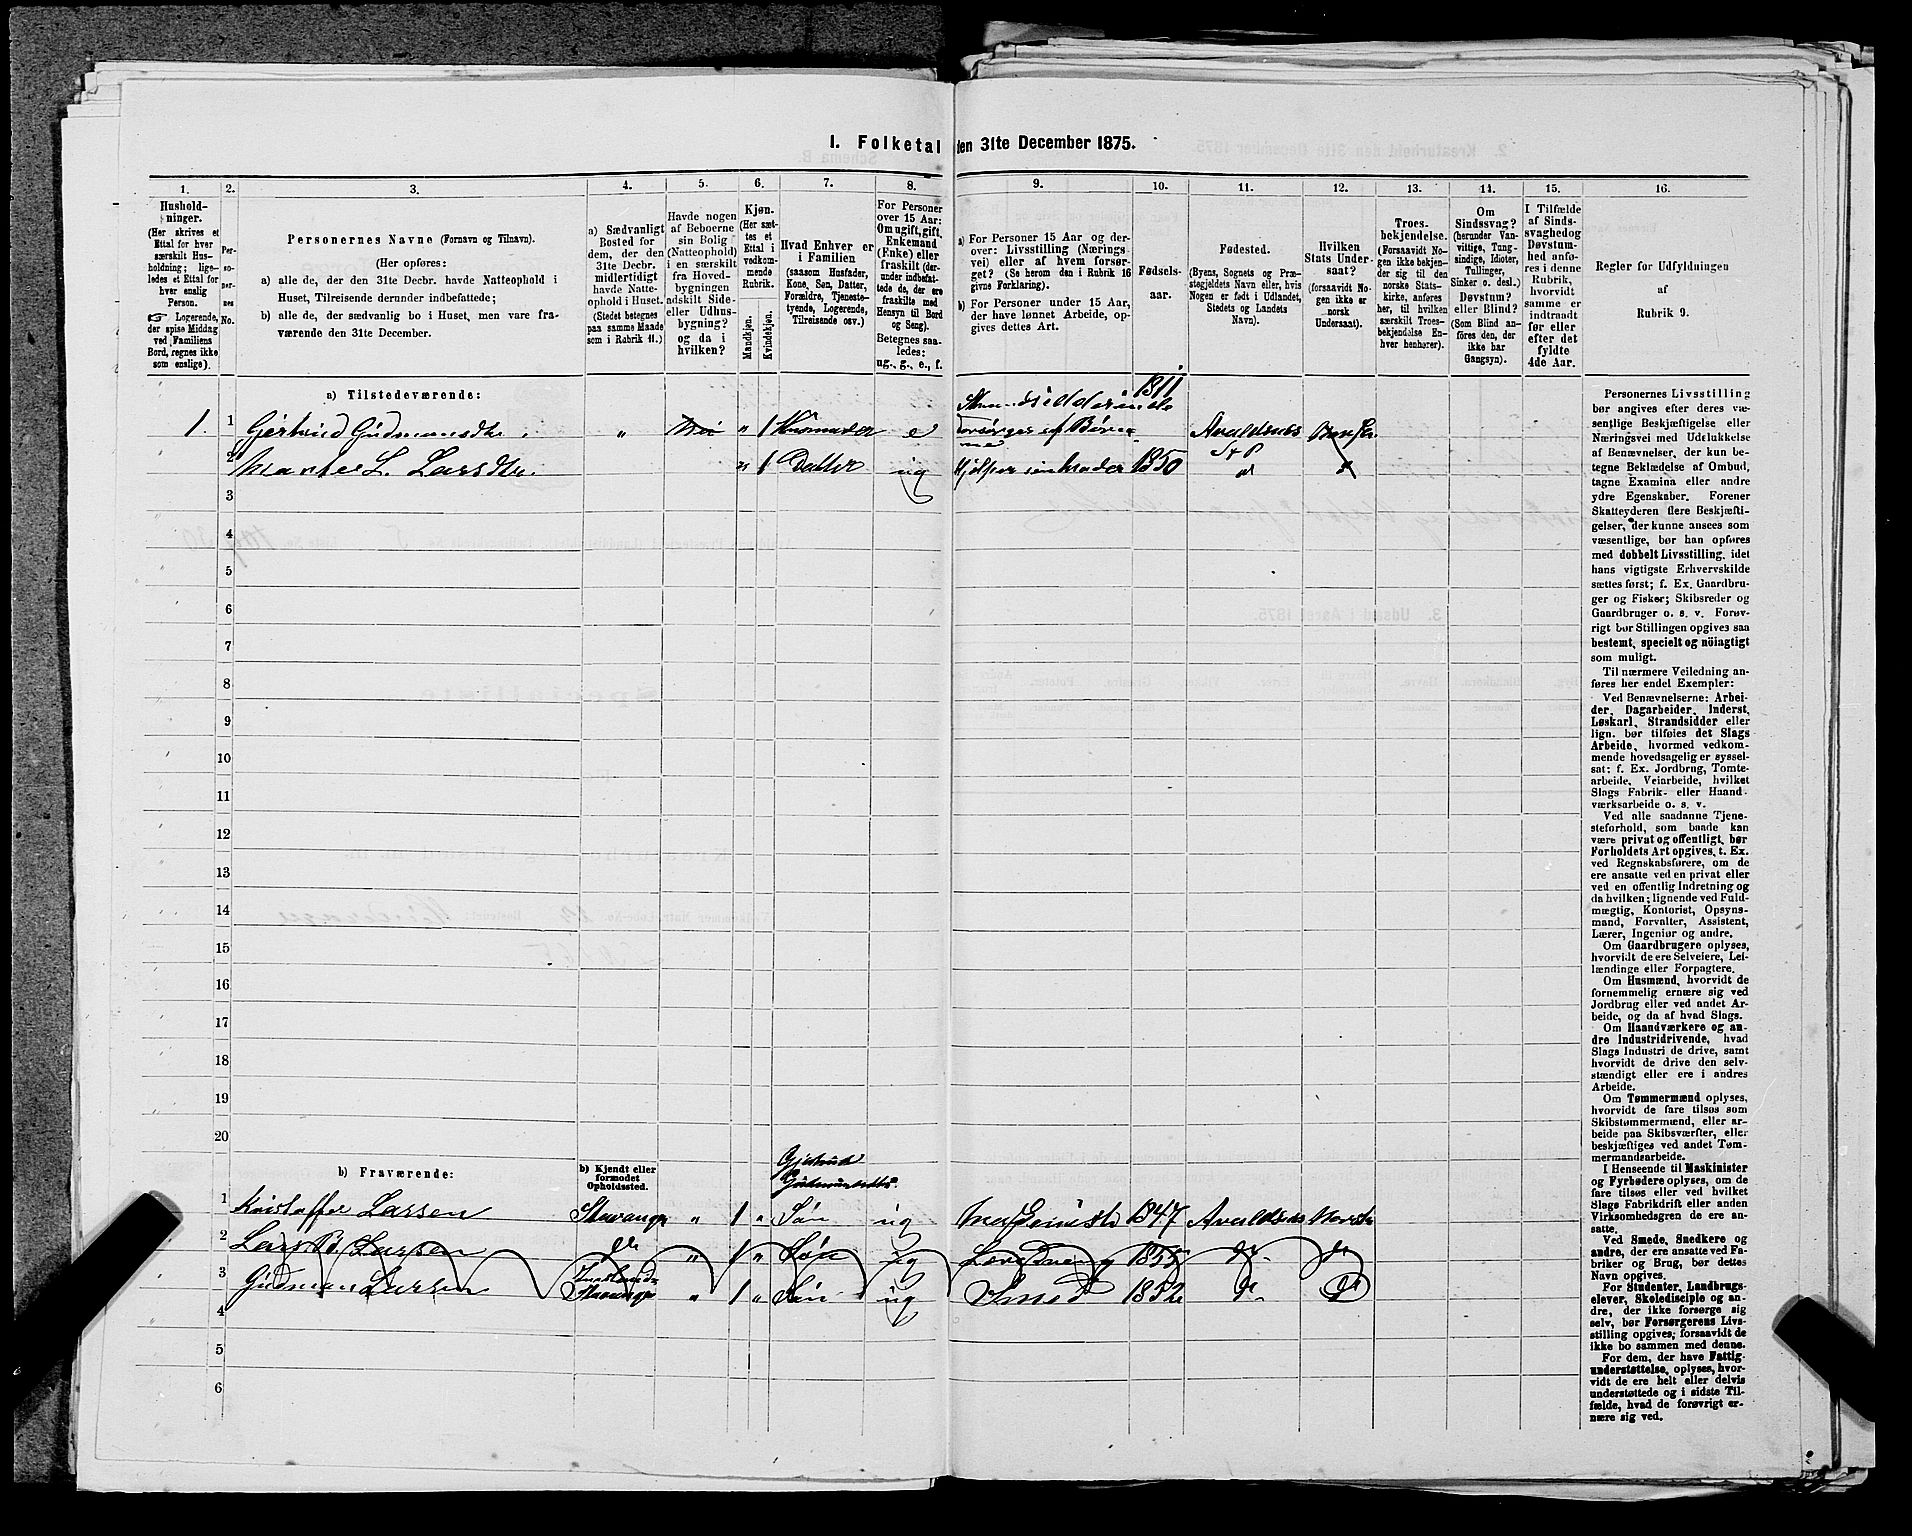 I. Folketal den 31te December 1875.
1.
2.
3.
4.
5.
6.
7.
8.
9.
10.
11.
12.
13.
14.
15.
16.
Hushold-
ninger.
(Her skrives et
Ettal for hver
særskilt Hus-
holdning; lige-
ledes et Ettal for
hver enslig
Person.
☞ Logerende,
der spise Middag
ved Familiens
Bord, regnes ikke
som enslige).
Per-
so-
ner-
nes
No.
Personernes Navne (Fornavn og Tilnavn).
(Her opføres:
a) alle de, der den 31te Decbr. havde Natteophold i
Huset, Tilreisende derunder indbefattede;
b) alle de, der sædvanlig bo i Huset, men vare fra-
værende den 31te December.
a) Sædvanligt
Bosted for
dem, der den
31te Decbr.
midlertidigt
havde Natte-
ophold i Huset.
(Stedet betegnes
paa samme Maade
som i Rubrik 11.)
Havde nogen
af Beboerne
sin Bolig
(Natteophold)
i en særskilt
fra Hoved-
bygningen
adskilt Side-
eller Udhus-
bygning?
og da i
hvilken?
Kjøn.
(Her sæt-
tes et
Ettal i
vedkom-
mende
Rubrik.
Mandkjøn.
Kvindekjøn.
Hvad Enhver er
i Familien
(saasom Husfader,
Kone, Søn, Datter,
Forældre, Tjeneste-
tyende, Logerende,
Tilreisende osv.)
For Personer
over 15 Aar:
Om ugift, gift,
Enkemand
(Enke) eller
fraskilt (der-
under indbefat-
tede de, der ere
fraskilte med
Hensyn til Bord
og Seng).
Betegnes saa-
ledes:
ug., g., e., f.
a) For Personer 15 Aar og der-
over: Livsstilling (Nærings-
vei) eller af hvem forsør-
get? (Se herom den i Rubrik 16
givne Forklaring).
b) For Personer under 15 Aar,
der have lønnet Arbeide, op-
gives dettes Art.
Fødsels-
aar.
Fødested.
(Byens, Sognets og Præ-
stegjeldets Navn eller, hvis
Nogen er født i Udlandet,
Stedets og Landets
Navn).
Hvilken
Stats Under-
saat?
(forsaavidt No-
gen ikke er
norsk
Undersaat).
Troes-
bekjendelse.
(Forsaavidt No-
gen ikke bekjen-
der sig til den
norske Stats-
kirke, anføres
her, til hvilken
særskilt Troes-
bekjendelse En-
hver henhører).
Om
Sindssvag?
(herunder Van-
vittige, Tung-
sindige, Idioter,
Tullinger,
Sinker o. desl.)
Døvstum?
eller Blind?
(Som Blind an-
føres den, der
ikke har
Gangsyn).
I Tilfælde
af Sinds-
svaghed og
Døvstum-
hed anfø-
res i denne
Rubrik,
hvorvidt
samme er
indtraadt
før eller
efter det
fyldte
4de Aar.
Regler for Udfyldningen
af
Rubrik 9.
a) Tilstedeværende:
1. 1 Gjertrud Gudmundsdtr. " 1 Husmoder e Strandsidderinde Forsørges af Børnene 1811 Avaldsnes S + P
2 Marthe L. Larsdtr. " 1 Datter ug Hjelper sin Moder 1850 d
3
4
5
6
7
8
9
10
11
12
13
14
15
16
17
18
19
20
b) Fraværende:
b) Kjendt eller
formodet
Opholdssted.
Gjertrud
Gudmundsdtrs.
1 Kristoffer Larsen Stavanger " 1 " Søn ug Maskinist 1847 Avaldsnes Norsk
2 Lars B. Larsen do " 1 " Søn ug Læredreng 1855 do do
3 Gudman Larsen Stavanger " 1 " Søn ug Smed 1852 do do
4
5
6
Personernes Livsstilling
bør angives efter deres væ-
sentlige Beskjæftigelse eller
Næringsvei med Udelukkelse
af Benævnelser, der kun be-
tegne Beklædelse af Ombud,
tagne Examina eller andre
ydre Egenskaber. Forener
Skatteyderen flere Beskjæfti-
gelser, der kunne ansees som
væsentlige, bør han opføres
med dobbelt Livsstilling, idet
hans vigtigste Erhvervskilde
sættes først; f. Ex. Gaardbru-
ger og Fisker; Skibsreder og
Gaardbruger o. s. v. Forøv-
rigt bør Stillingen opgives saa
bestemt, specielt og nöiagtigt
som muligt.
Til nærmere Veiledning an-
føres her endel Exempler:
Ved Benævnelserne: Arbei-
der, Dagarbeider, Inderst,
Løskarl, Strandsidder eller
lign. bør tilføies det Slags
Arbeide, hvormed vedkom-
mende hovedsagelig er syssel-
sat; f. Ex. Jordbrug, Tomte-
arbeide, Veiarbeide, hvilket
Slags Fabrik- eller Haand-
værksarbeide o. s. v.
Ved alle saadanne Tjene-
steforhold, som baade kan
være privat og offentligt, bør
Forholdets Art opgives, t. Ex.
ved Regnskabsførere, om de
ere ansatte ved en privat eller
ved en offentlig Indretning og
da hvilken; lignende ved Fuld-
mægtig, Kontorist, Opsyns-
mand, Forvalter, Assistent,
Lærer, Ingeniør og andre.
Om Gaardbrugere oplyses,
hvorvidt de ere Selveiere, Lei-
lændinge eller Forpagtere.
Om Husmænd, hvorvidt de
fornemmelig ernære sig ved
Jordbrug eller ved andet Ar-
beide, og da af hvad Slags.
Om Haandværkere og an-
dre Industridrivende, hvad
Slags Industri de drive, samt
hvorvidt de drive den selv-
stændigt eller ere i andres
Arbeide.
Om Tømmermænd oplyses,
hvorvidt de fare tilsøs som
Skibstømmermænd, eller ar-
beide paa Skibsværfter, eller
beskjæftiges ved andet Tøm-
mermandsarbeide.
I Henseende til Maskinister
og Fyrbødere oplyses, om de
fare tilsøs eller ved hvilket
Slags Fabrikdrift eller anden
Virksomhedsgren de ere an-
satte.
Ved Smede, Snedkere og
andre, der ere ansatte ved Fa-
briker og Brug, bør dettes
Navn opgives.
For Studenter, Landbrugs-
elever, Skoledisciple og an-
dre, der ikke forsørge sig
selv, bør Forsørgerens Livs-
stilling opgives, forsaavidt de
ikke bo sammen med denne.
For dem, der have Fattig-
understøttelse, oplyses, hvor-
vidt de ere helt eller delvis
understøttede og i sidste Til-
fælde, hvad de forøvrigt er-
nære sig ved.